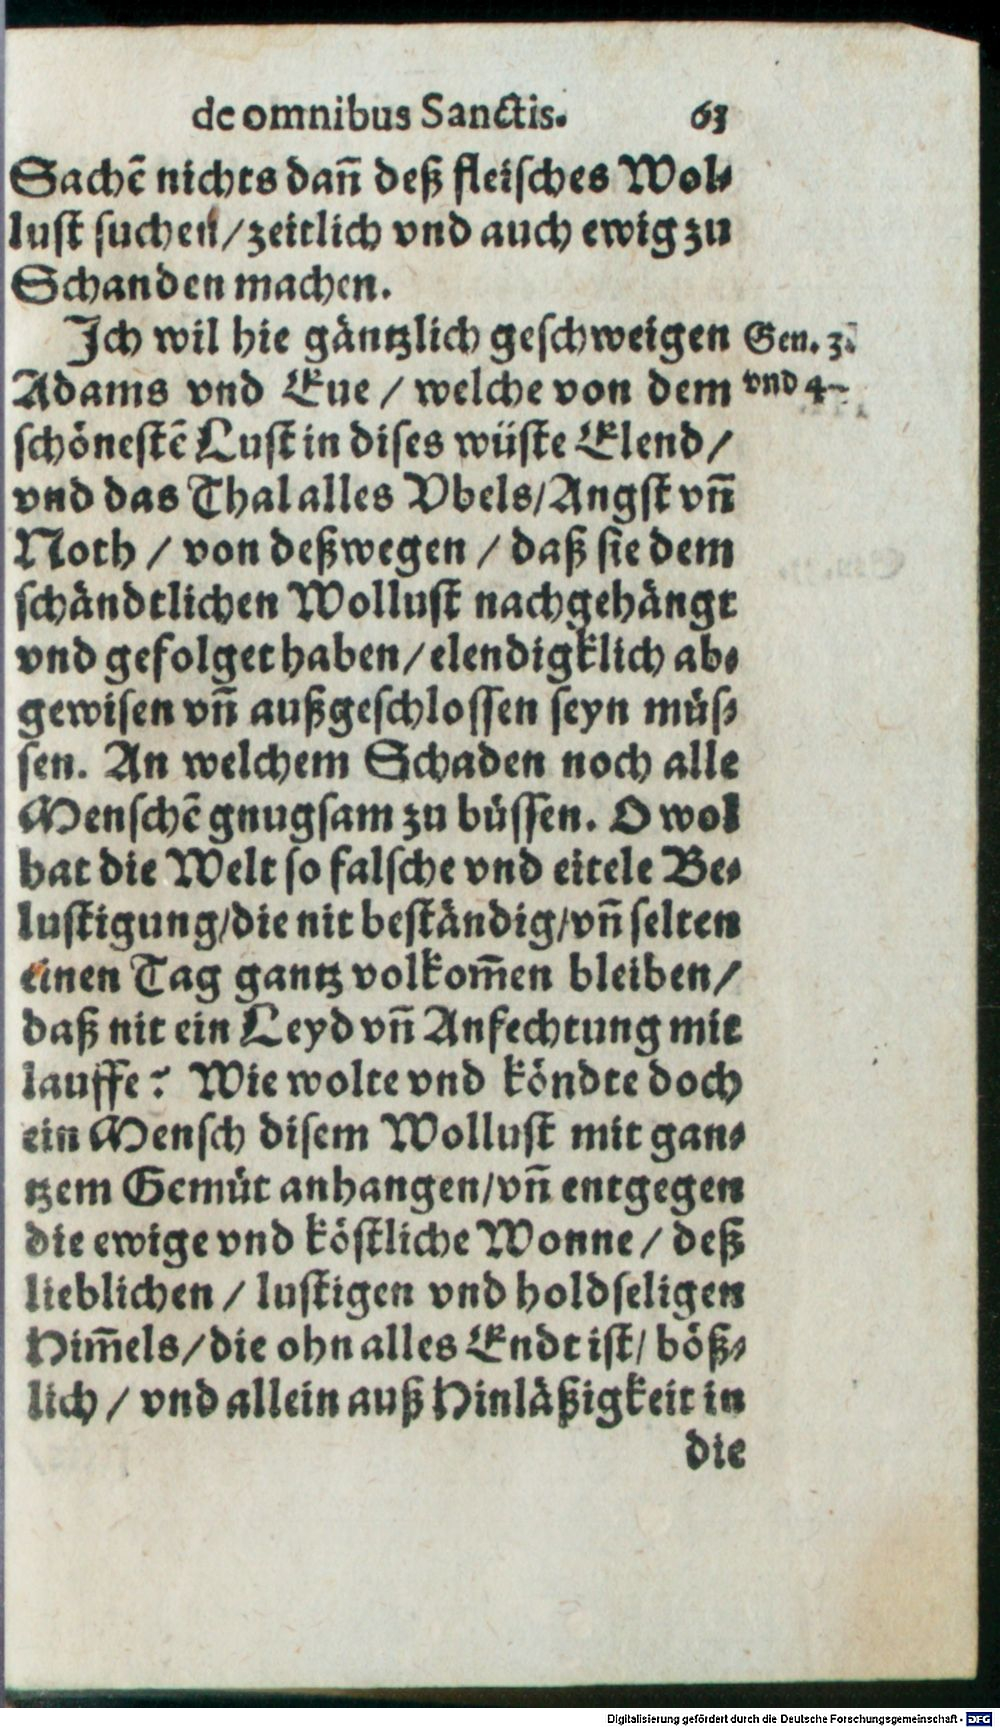 de omnibus Sanctis. 63
Sachē nichts dañ deß fleisches Wol-
lust suchen/zeitlich vnd auch ewig zu
Schanden machen.
Ich wil hie gäntzlich geschweigen
Gen. 3.
Adams vnd Eue / welche von dem
vnd 4.
schönestē Lust in dises wüste Elend/
vnd das Thal alles Vbels/Angst vñ
Noth / von deßwegen / daß sie dem
schändtlichen Wollust nachgehängt
vnd gefolget haben/elendigklich ab-
gewisen vñ außgeschlossen seyn müs-
sen. An welchem Schaden noch alle
Menschē gnugsam zu büssen. O wol
hat die Welt so falsche vnd eitele Be-
lustigung/die nit beständig/vñ selten
einen Tag gantz volkom̃en bleiben/
daß nit ein Leyd vñ Anfechtung mit
lauffe? Wie wolte vnd köndte doch
ein Mensch disem Wollust mit gan-
tzem Gemüt anhangen/vñ entgegen
die ewige vnd köstliche Wonne / deß
lieblichen / lustigen vnd holdseligen
Him̃els/die ohn alles Endt ist/ böß-
lich / vnd allein auß Hinläßigkeit in
die
Digitalisierung gefördert durch die Deutsche Forschungsgemeinschaft - DFG